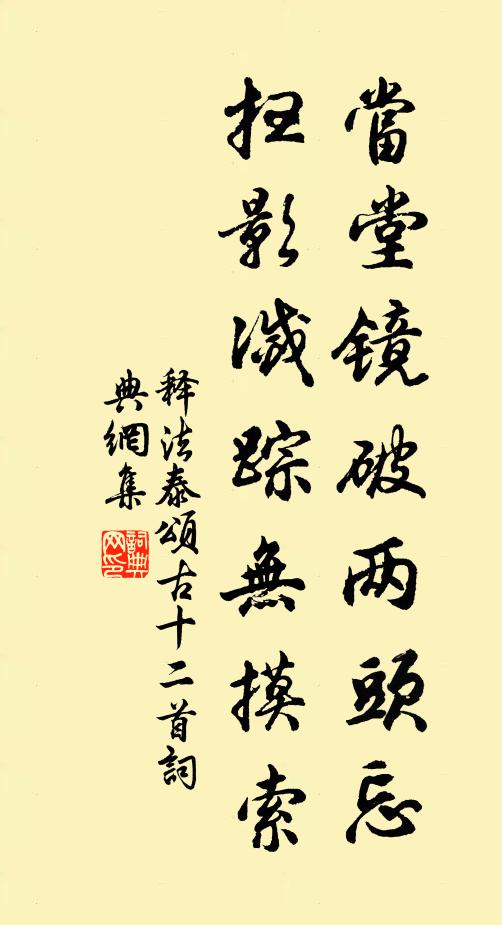 當堂鏡破两頭忘
抂影滅踪無摸索
释法泰頌古十二首詞
典網集
詞典
网印